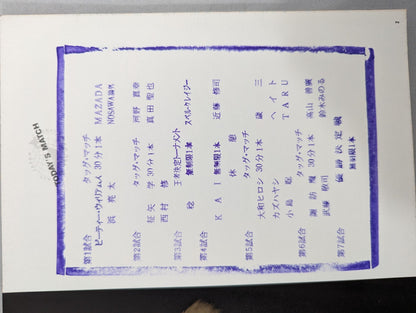 TODAY'S MATCH
第1試合 タッグ・マッチ MAZADA
ピーティー・ウイリアムス 30分1本 NOSAWA論外
浜 亮太
第2試合 タッグ・マッチ 河野 真幸
征矢 学 30分1本 真田 聖也
西村 修
第3試合 王者決定トーナメント
稔 無制限1本 スペル・クレイジー
第4試合
KAI 無制限1本 近藤 修司
休憩
第5試合 タッグ・マッチ 歳三
大和ヒロシ 30分1本 ヘイト
カズハヤシ TARU
小島 聡
第6試合 タッグ・マッチ 高山 善廣
諏訪魔 30分1本 鈴木みのる
武藤 敬司
第7試合 優勝決定戦
無制限1本